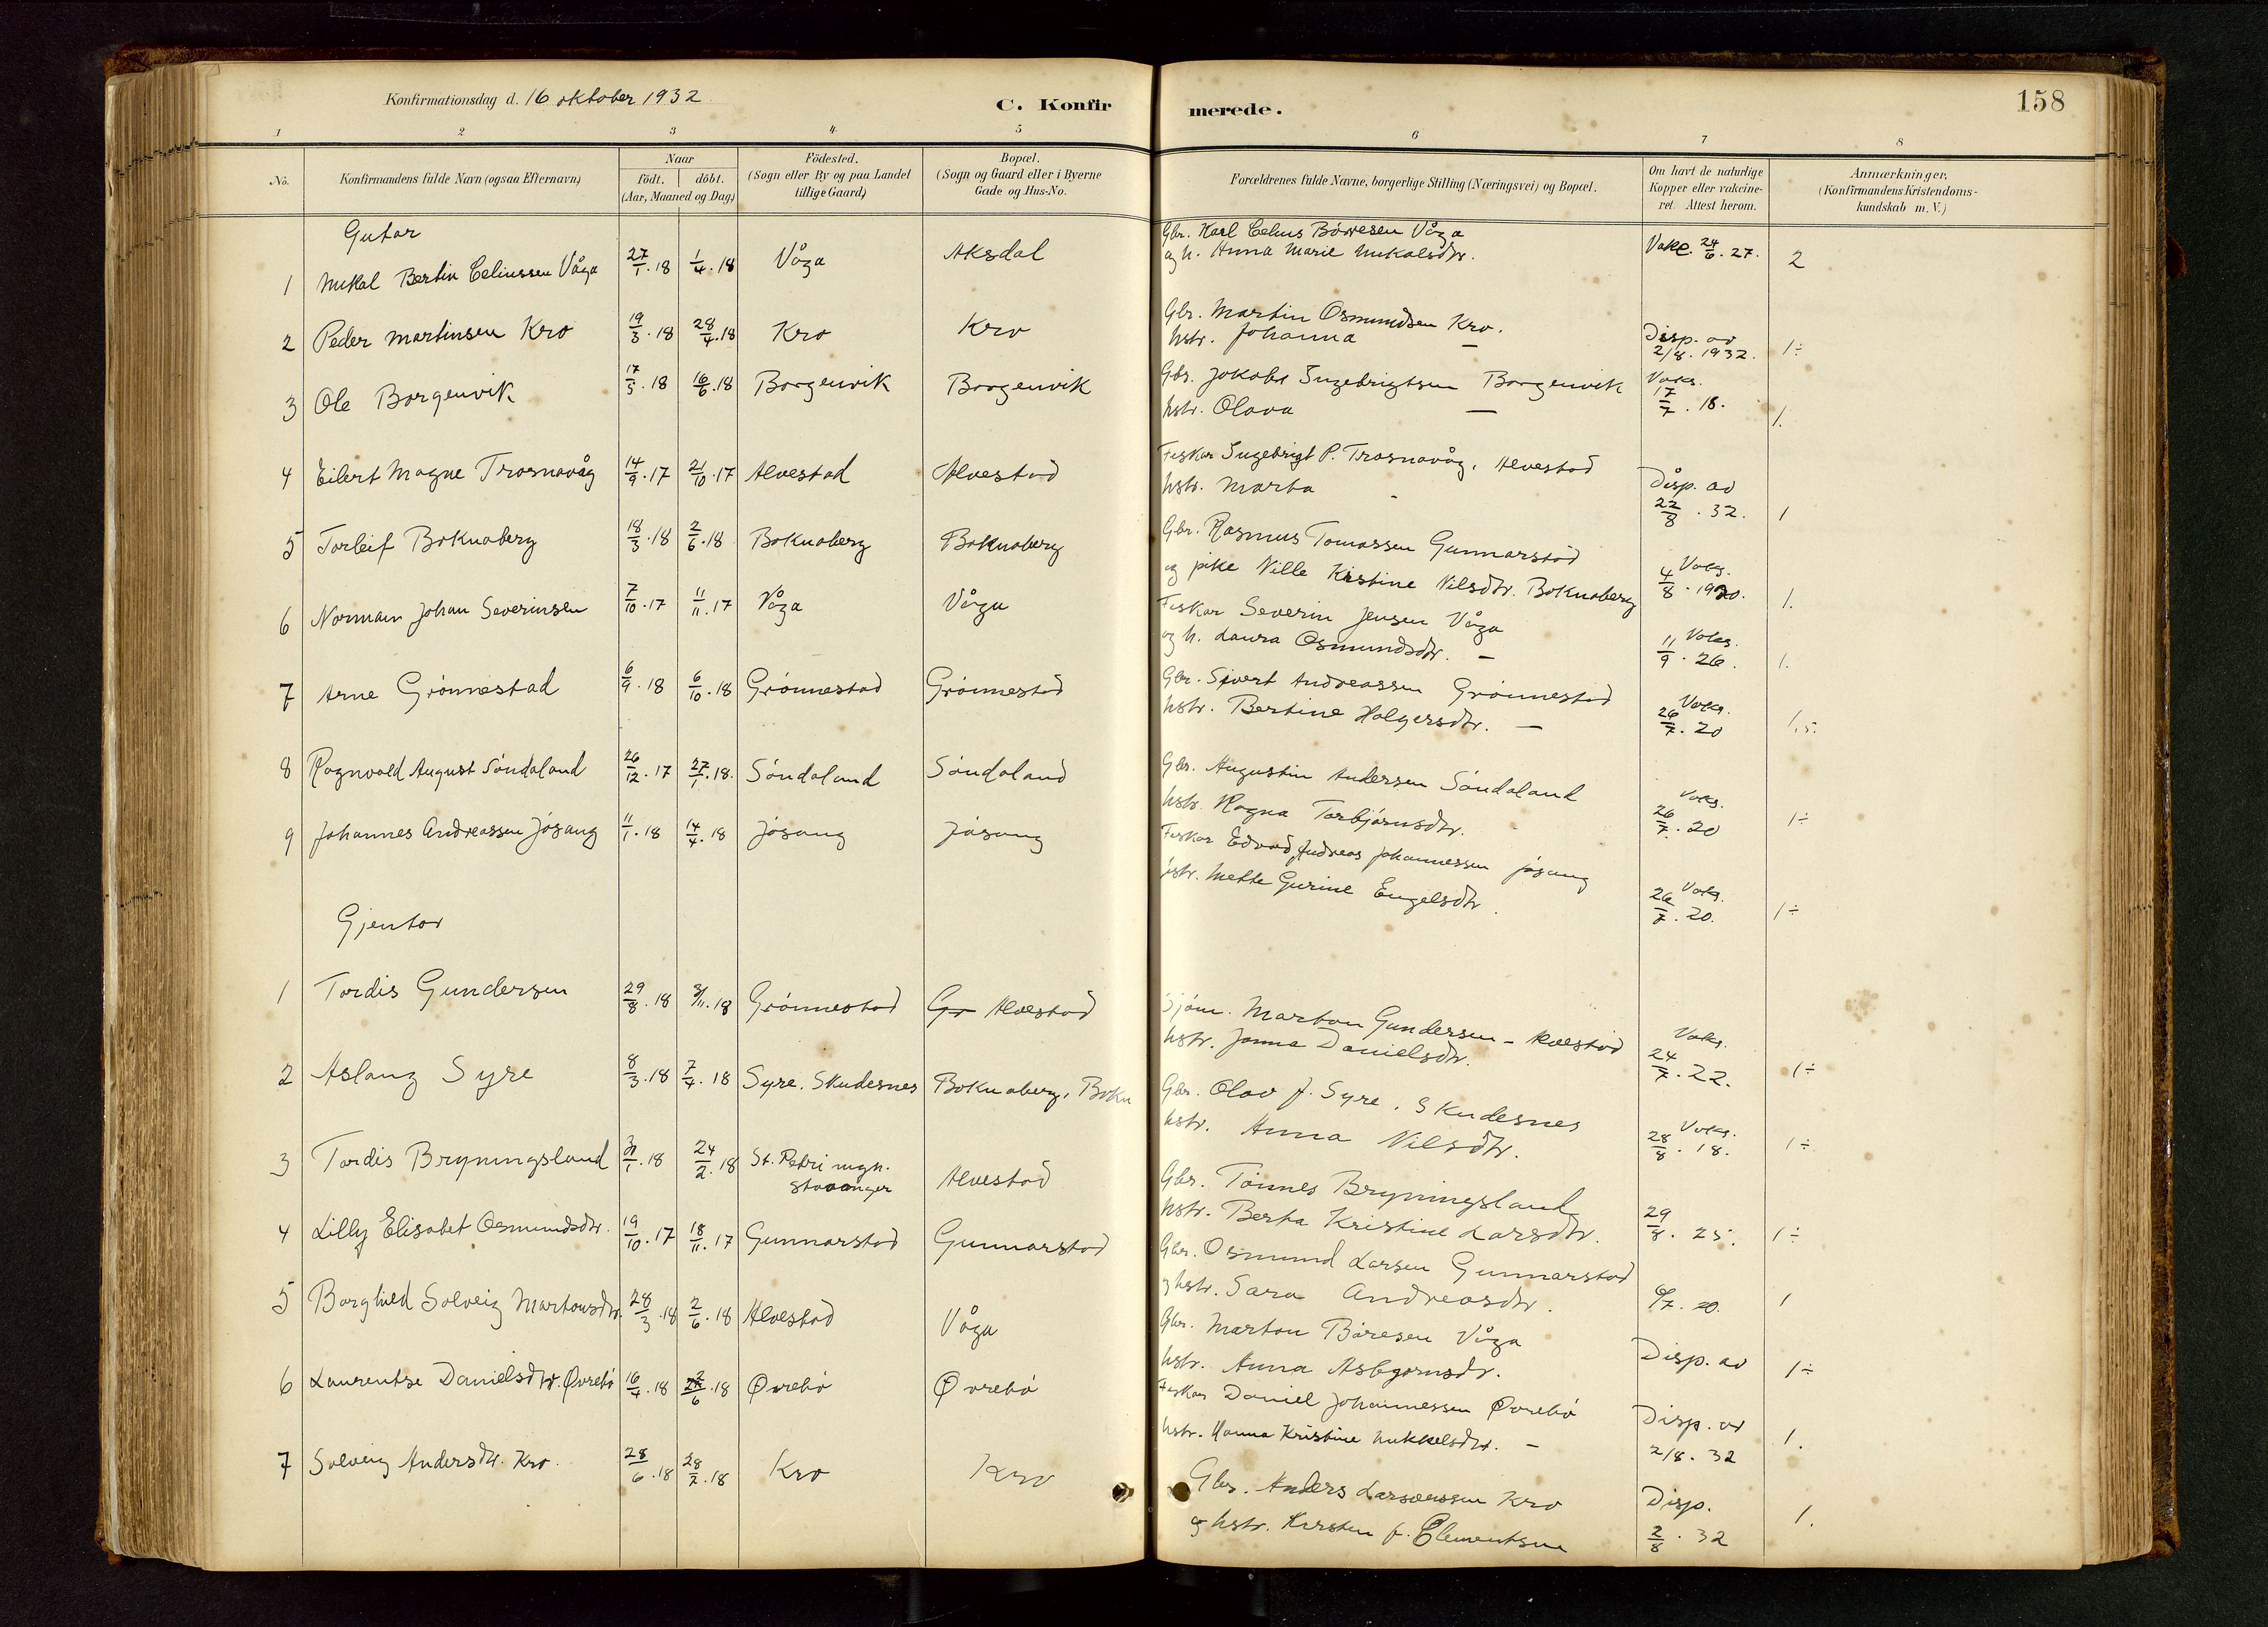 Konfirmationsdag d. 16 oktober 1932
C. Konfirmerede.
158
1 2 3 4 5 6 7 8
No. Konfirmandens fulde Navn (ogsaa Efternavn) Naar födt. döbt. (Aar, Maaned og Dag) Födested. (Sogn eller By og paa Landet tillige Gaard) Bopæl. (Sogn og Gaard eller i Byerne Gade og Hus-No. Forældrenes fulde Navne, borgerlige Stilling (Næringsvei) og Bopæl. Om havt de naturlige Kopper eller vakcineret. Attest herom. Anmærkninger, (Konfirmandens Kristendomskundskab m. V.)
Gutar
1 Mikal Bertin Celiussen Våga 27/1.18 1/4.18 Våga Aksdal Gbr. Karl Celius Børresen Våga Vakc. 24/6.27. 2
og h. Anna Marie Mikalsdtr.
2 Peder Martinsen Kro 19/3.18 28/4.18 Kro Kro Gbr. Martin Osmundsen Kro. Disp. av 2/8.1932. 1÷
hstr. Johanna —
3 Ole Borgenvik 17/5.18 16/6.18 Borgenvik Borgenvik Gbr. Jakob Ingebrigtsen Borgenvik Vakc. 17/7.18. 1.
hstr. Olava —
4 Eilert Magne Trosnavåg 14/9.17 21/10.17 Alvestad Alvestad Fiskar Ingebrigt P. Trosnavåg, Alvestad Disp. av 22/8.32. 1
hstr. Marta -
5 Torleif Boknaberg 18/3.18 2/6.18 Boknaberg Boknaberg Gbr. Rasmus Tomassen Gunnarstad Vakc. 4/8.1920. 1.
og pike Nille Kristine Nilsdtr. Boknaberg
6 Norman Johan Severinsen 7/10.17 11/11.17 Våga Våga Fiskar Severin Jensen Våga Vakc. 11/9.26. 1.
og h. Laura Osmundsdtr. —
7 Arne Grönnestad 6/9.18 6/10.18 Grönnestad Grönnestad Gbr. Sivert Andreassen Grönnestad Vakc. 26/7.20 1,5.
hstr. Bertine Holgersdtr. —
8 Ragnvald August Söndaland 26/12.17 27/1.18. Söndaland Söndaland Gbr. Augustin Andersen Söndaland Vakc. 26/7.20 1÷
hstr. Ragna Torbjörnsdtr.
9 Johannes Andreassen Jösang 11/1.18 14/4.18 Jösang Jösang Fiskar Edvard Andreas Johannessen Jösang Vakc. 26/7.20. 1÷
hstr. Mette Gurine Engelsdtr.
Gjentor
1 Tordis Gundersen 29/8.18 3/11.18 Grönnestad Gr Alvestad Sjöm. Marton Gundersen - Alvestad Vakc. 24/7.22. 1÷
hstr. Janna Danielsdtr.
2 Aslaug Syre 8/3.18 7/4.18 Syre. Skudesnes Boknaberg, Bokn Gbr. Olav J. Syre, Skudesnes Vakc. 28/8.18. 1÷
hstr. Anna Nilsdtr.
3 Tordis Bryningsland 31/1.18 24/2.18 St. Petri mgh. Stavanger Alvestad Gbr. Tönnes Bryningsland 29/8.25. 1÷
hstr. Berta Kristine Larsdtr.
4 Lilly Elisabet Osmundsdtr. 19/10.17 18/11.17 Gunnarstad Gunnarstad Gbr. Osmund Larsen Gunnarstad 6/7.20. 1
og hstr. Sara Andreasdtr.
5 Borghild Solveig Martonsdtr. 28/3.18 2/6.18 Alvestad Våga Gbr. Marton Böresen Våga Disp. av 1÷
hstr. Anna Asbjörnsdr.
6 Laurentse Danielsdtr. Øvrebö 16/4.18 2/6.18 Øvrebö Øvrebö Fiskar Daniel Johannessen Øvrebö Disp. av 2/8.32 1.
hstr. Hanna Kristine Mikkelsdtr. —
7 Solveig Andersdtr. Kro. 28/6.18 28/7.18 Kro Kro Gbr. Anders Larsenssen Kro Disp. 2/8.32 1.
og hstr. Kirsten f. Clementsen